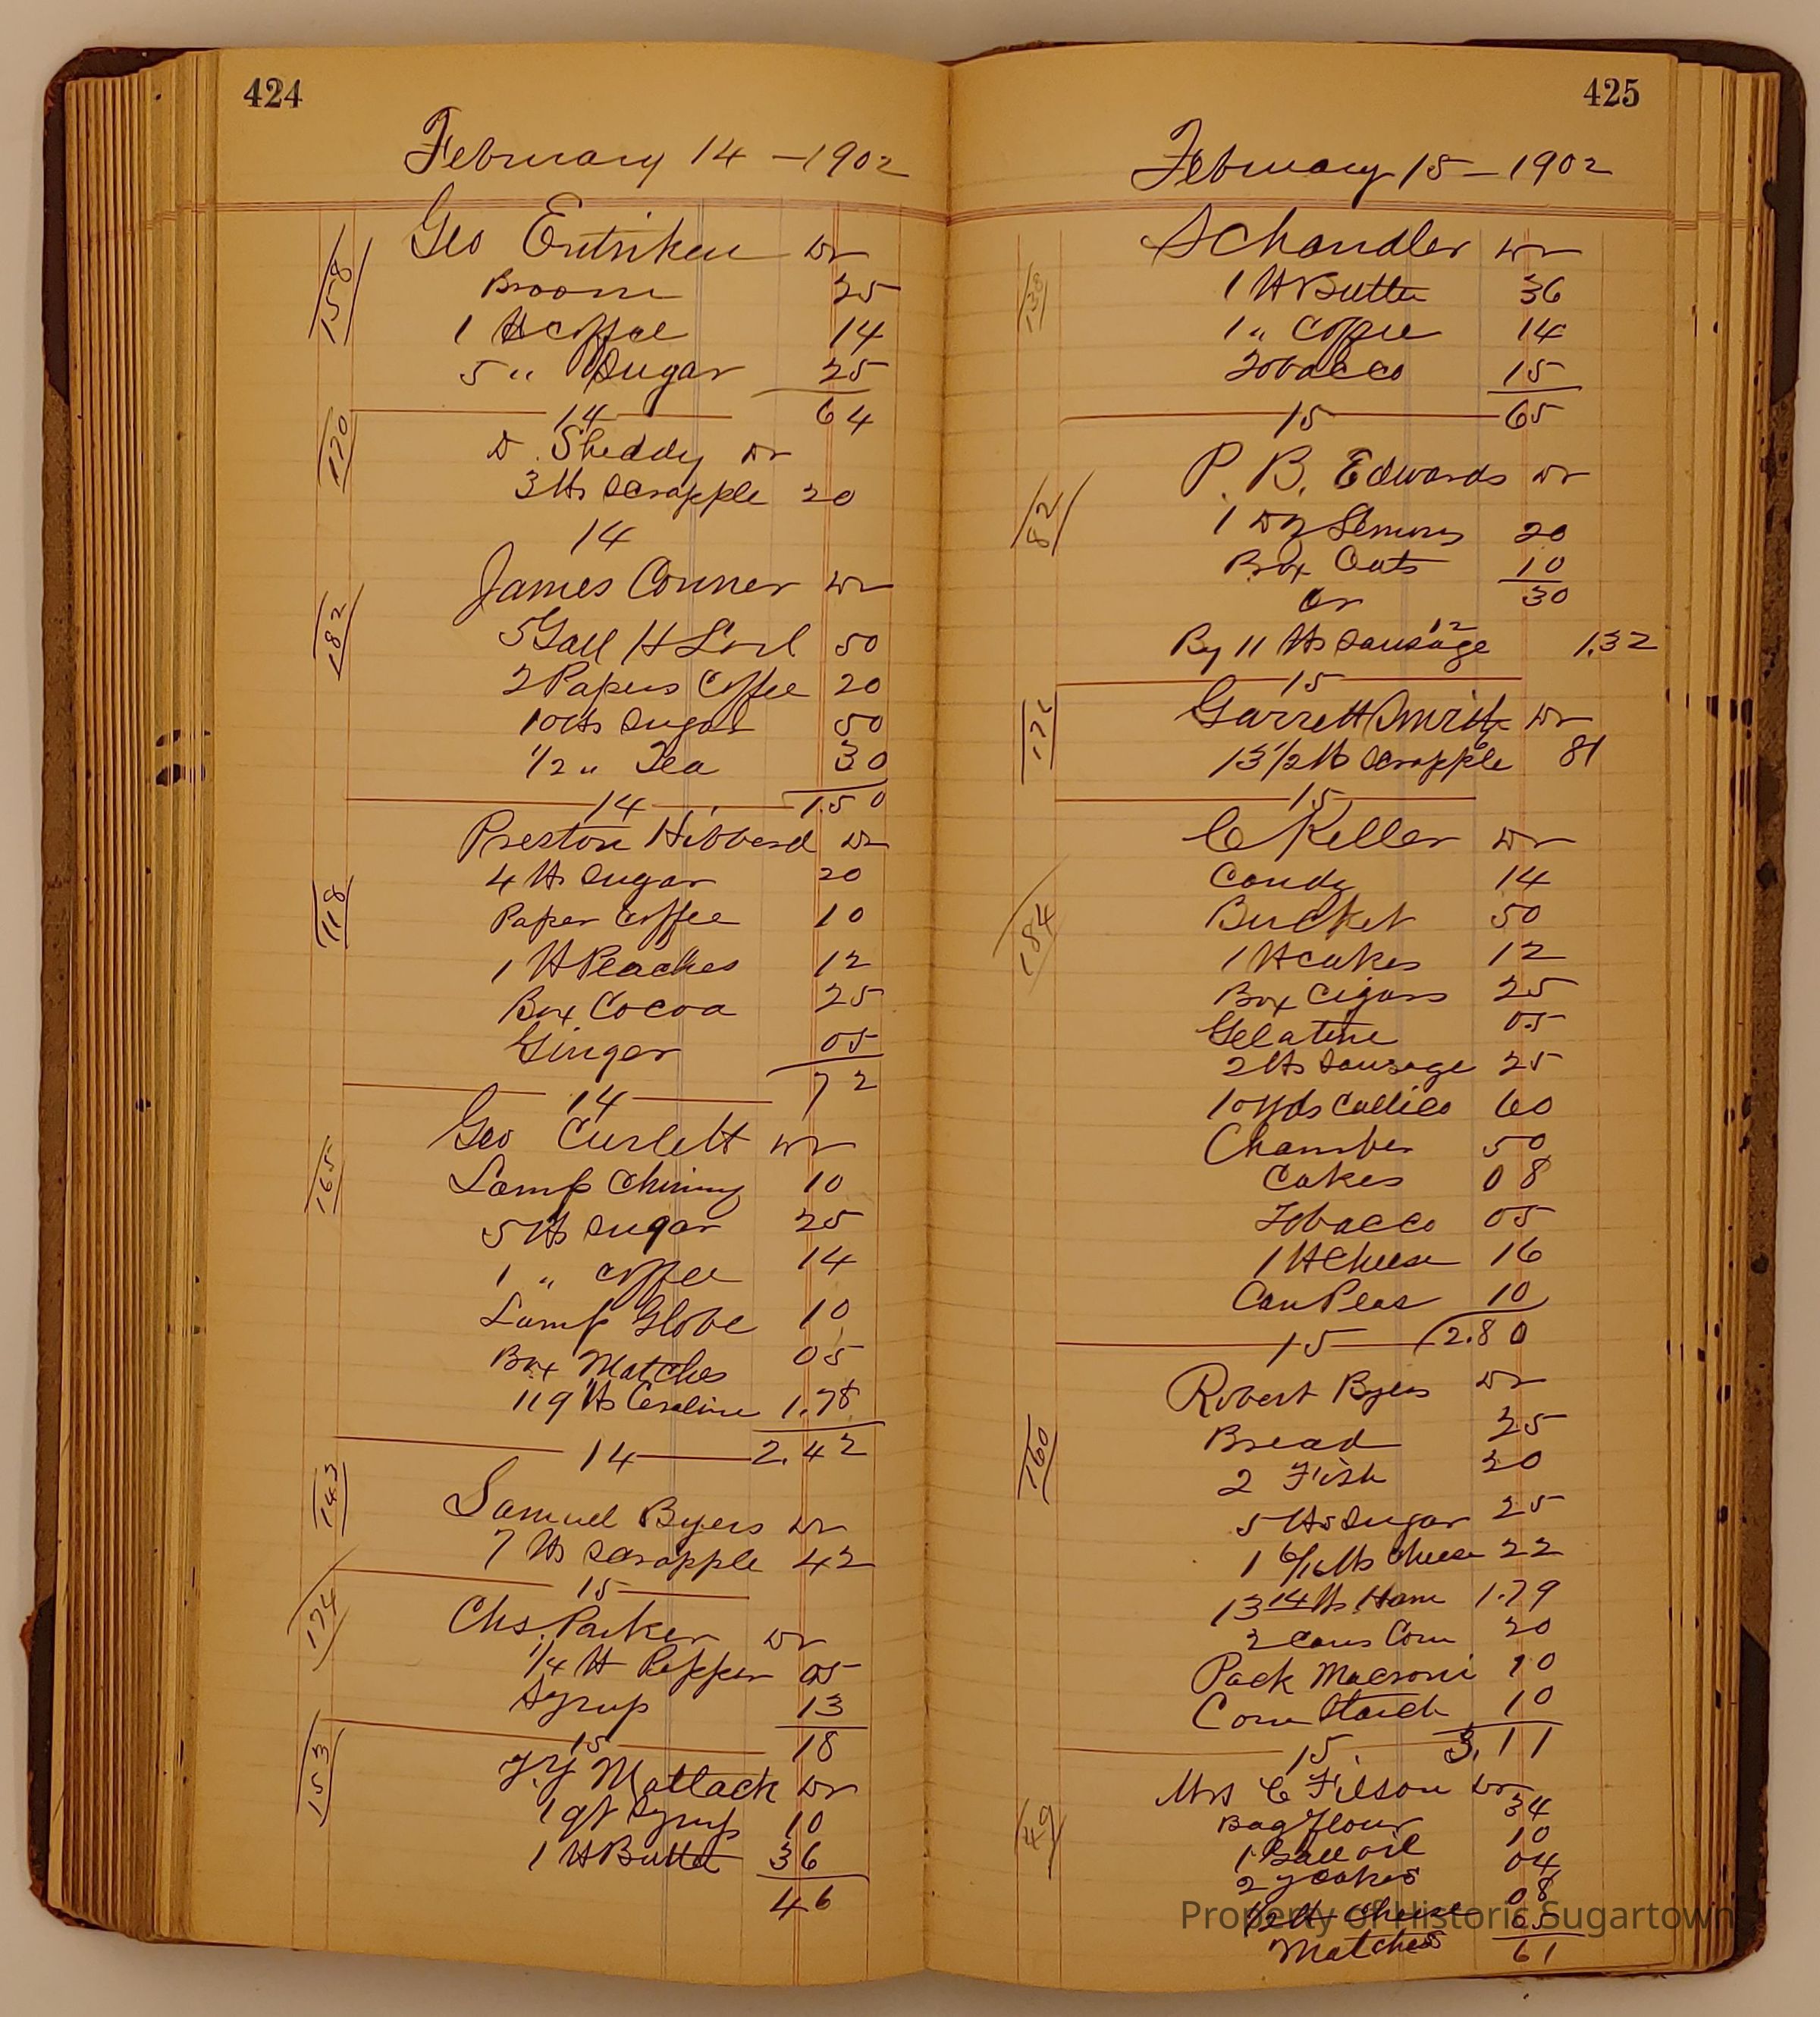 424
February 14 - 1902
158
Geo Entriken Dr
Broom 25
1 lb Coffee 14
5 " Sugar 25
14 64
170
D. Sheddy Dr
3 lbs Scrapple 20
14
182
James Conner Dr
5 Gall H L Oil 50
2 Papers Coffee 20
10 lbs Sugar 50
1/2 " Tea 30
14 1.50
118
Preston Hibberd Dr
4 lbs Sugar 20
Paper Coffee 10
1 lb Peaches 12
Box Cocoa 25
Ginger 05
14 72
165
Geo Curlett Dr
Lamp Chimny 10
5 lbs Sugar 25
1 " Coffee 14
Lamp Globe 10
Box Matches 05
119 lbs 1.78
14 2.42
143
Samuel Byers Dr
7 lbs Scrapple 42
15
174
Chs. Parker Dr
1/4 lb Pepper 05
Syrup 13
15 18
153
Mattack Dr
1 qt Syrup 10
1 lb Butter 36
46
425
February 15 - 1902
138
S Chandler Dr
1 lb Butter 36
1 " Coffee 14
Tobacco 15
15 65
82
P. B. Edwards Dr
1 Dz Lemons 20
Box Oats 10
Cr 30
By 11 lbs Sausage 12 1.32
15
Garrett Smith Dr
13 1/2 lb Scrapple 6 81
15
184
C Keller Dr
Candy 14
Bucket 50
1 lb Cakes 12
Box Cigars 25
Gelatine 05
2 lbs Sausage 25
10 Yds Callico 60
Chamber 50
Cakes 08
Tobacco 05
1 lb Cheese 16
Can Peas 10
15 2.80
160
Robert Byers Dr
Bread 25
2 Fish 20
5 lbs Sugar 25
1 6/16 lbs Cheese 22
13 14 lbs Ham 1.79
2 Cans Corn 20
Pack Macroni 10
Corn Starch 10
15 3.11
49
Mrs C Filson Dr
Bag Flour 34
1 Gall Oil 10
2 Y Cakes 04
1/2 lb Cheese 08
Matches 05
61
Property of Historic Sugartown